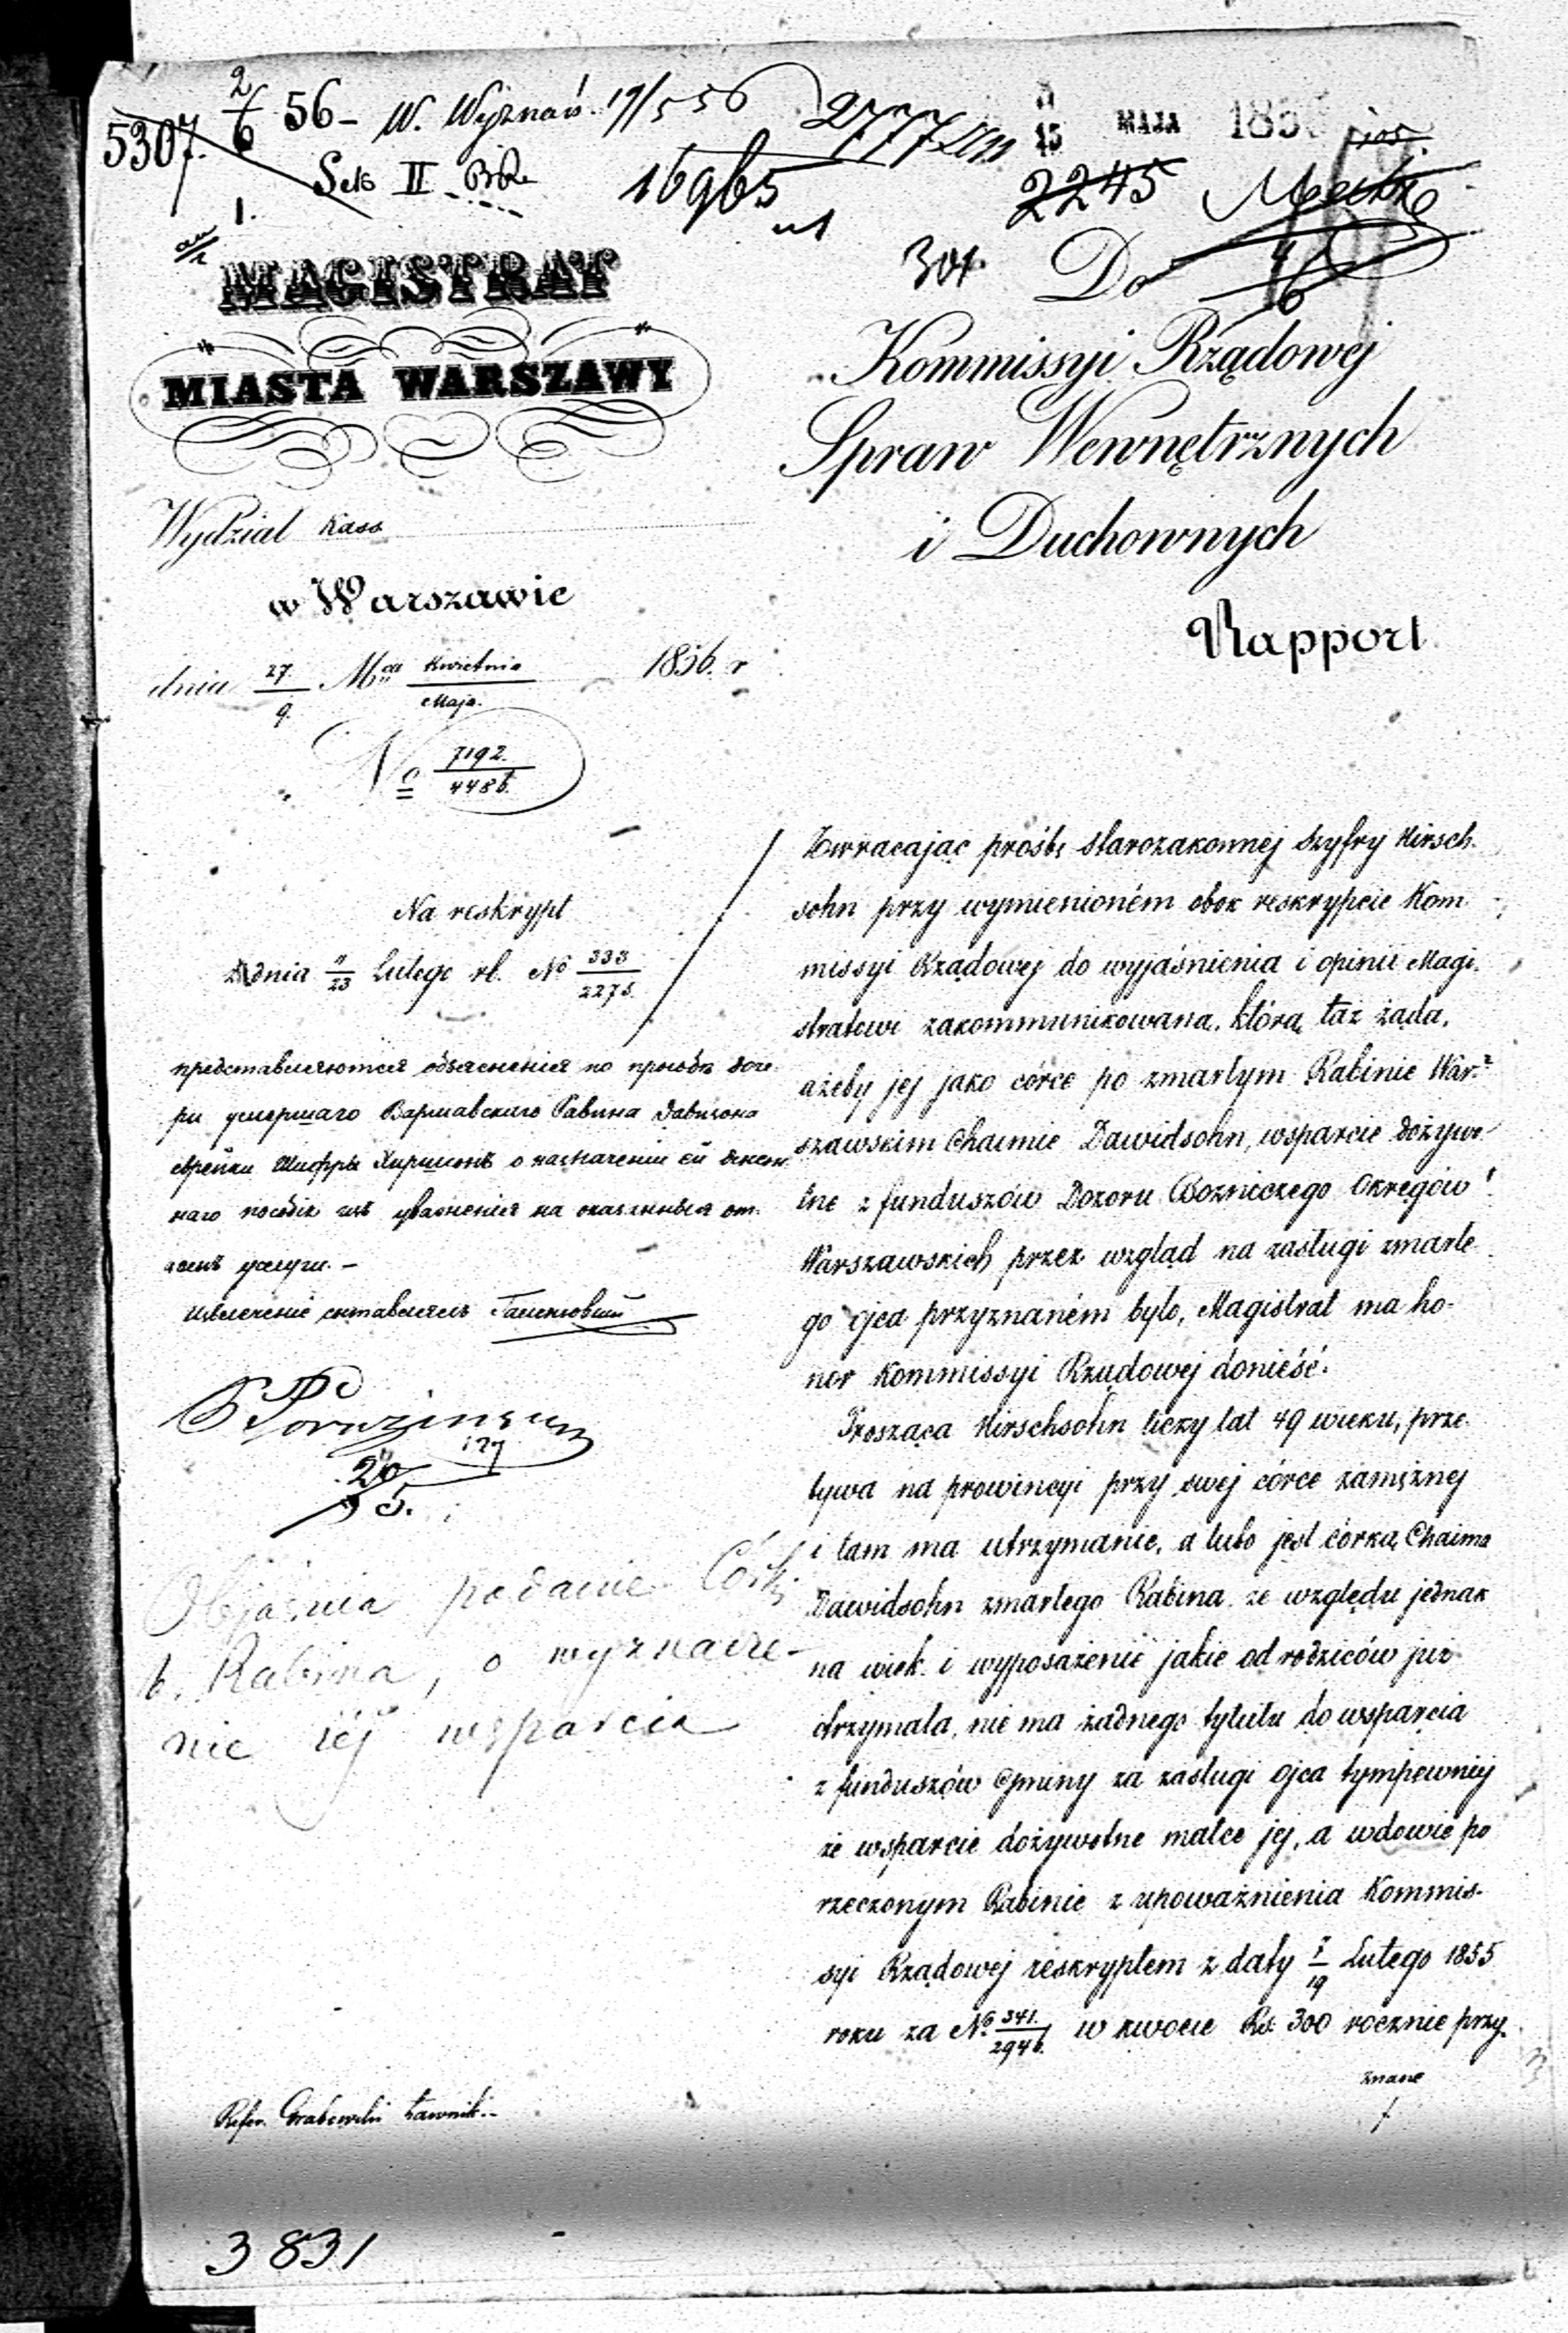 5307. 2/6 56 – W. Wyznań 17/5 56 2777
3/15 MAJA 185
Sek II
16965
2245
304
1.
MAGISTRAT
MIASTA WARSZAWY
Wydział Kass
w Warszawie
dnia 27/9 Mca Kwietnia/Maja 1856. r
No 7192./4486.
Na reskrypt
z dnia 11/23 Lutego rb. No 333/2275.
представляются объясненія по прозьбѣ доче
ри умершаго Варшавскаго Раввина Давидсона
еврейки Шифры Хиршсонъ о назначеніи ей денеж
наго пособія изъ уваженія на оказанныя от
цемъ услуги. –
Извлеченіе составлялъ
20/5.
Objaśnia podanie Córki
b. Rabina, o wyznacze-
nie jéj wsparcia
Refer. Grabowski Ławnik.
3831
Do
Kommissyi Rządowéj
Spraw Wewnętrznych
i Duchownych
Rapport
Zwracając prośbę starozakonnéj Szyfry Hirsch-
sohn przy wymienioném obok reskrypcie Kom
missyi Rządowéj do wyjaśnienia i opinii Magi-
stratowi zakommunikowaną, którą taż żąda,
ażeby jéj jako córce po zmarłym Rabinie War-
szawskim Chaimie Dawidsohn, wsparcie dożywo
tne z funduszów Dozoru Bożniczego Okręgów
Warszawskich przez wzgląd na zasługi zmarłe
go ojca przyznaném było, Magistrat ma ho-
nor Kommissyi Rządowéj donieść.
Prosząca Hirschsohn liczy lat 49 wieku, prze
bywa na prowincyi przy swéj córce zamężnéj
i tam ma utrzymanie, a lubo jest córką Chaima
Dawidsohn zmarłego Rabina ze względu jednak
na wiek i wyposażenie jakie od rodziców już
otrzymała, nie ma żadnego tytułu do wsparcia
z funduszów Gminy za zasługi ojca tympewniéj
że wsparcie dożywotne matce jéj, a wdowie po
rzeczonym Rabinie z upoważnienia Kommis-
syi Rządowéj reskryptem z daty 7/19 Lutego 1855
roku za No 341./2946. w kwocie Rs. 300 rocznie przy-
znane